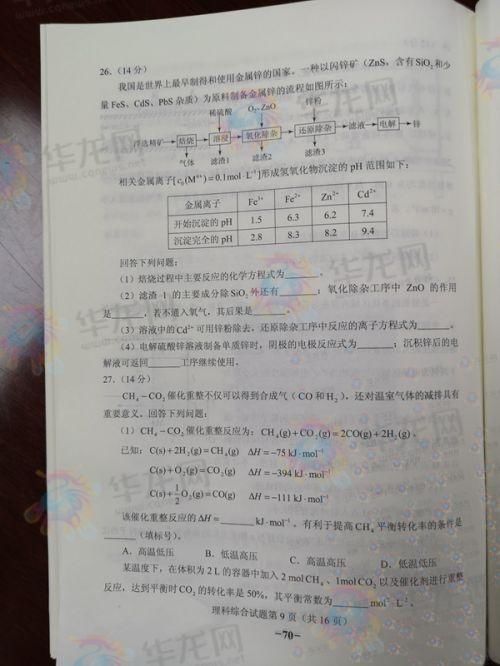 26. (14 分)
我国是世界上最早制得和使用金属锌的国家。一种以闪锌矿(ZnS,含有SiO₂和少
量 FeS、CdS、PbS 杂质)为原料制备金属锌的流程如图所示:
稀硫酸 O₂、ZnO 锌粉
浮选精矿 焙烧 溶浸 氧化除杂 还原除杂 滤液 电解 锌
气体 滤渣1 滤渣2 滤渣3
相关金属离子[c₀(Mⁿ⁺)=0.1mol·L⁻¹]形成氢氧化物沉淀的 pH 范围如下:
金属离子 Fe³⁺ Fe²⁺ Zn²⁺ Cd²⁺
开始沉淀的 pH 1.5 6.3 6.2 7.4
沉淀完全的 pH 2.8 8.3 8.2 9.4
回答下列问题:
(1)焙烧过程中主要反应的化学方程式为______。
(2)滤渣 1 的主要成分除SiO₂外还有______;氧化除杂工序中 ZnO 的作用
是______,若不通入氧气,其后果是______。
(3)溶液中的Cd²⁺可用锌粉除去,还原除杂工序中反应的离子方程式为______。
(4)电解硫酸锌溶液制备单质锌时,阴极的电极反应式为______;沉积锌后的电
解液可返回______工序继续使用。
27. (14 分)
CH₄-CO₂催化重整不仅可以得到合成气(CO和H₂),还对温室气体的减排具有
重要意义。回答下列问题:
(1)CH₄-CO₂催化重整反应为:CH₄(g)+CO₂(g)=2CO(g)+2H₂(g)。
已知:C(s)+2H₂(g)=CH₄(g) ΔH=-75 kJ·mol⁻¹
C(s)+O₂(g)=CO₂(g) ΔH=-394 kJ·mol⁻¹
C(s)+1/2O₂(g)=CO(g) ΔH=-111 kJ·mol⁻¹
该催化重整反应的ΔH=______kJ·mol⁻¹,有利于提高CH₄平衡转化率的条件是
______(填标号)。
A. 高温低压 B. 低温高压 C. 高温高压 D. 低温低压
某温度下,在体积为 2 L 的容器中加入 2 mol CH₄、1mol CO₂以及催化剂进行重整
反应,达到平衡时CO₂的转化率是 50%,其平衡常数为______mol²·L⁻²。
理科综合试题第 9 页(共 16 页)
-70-
华龙网